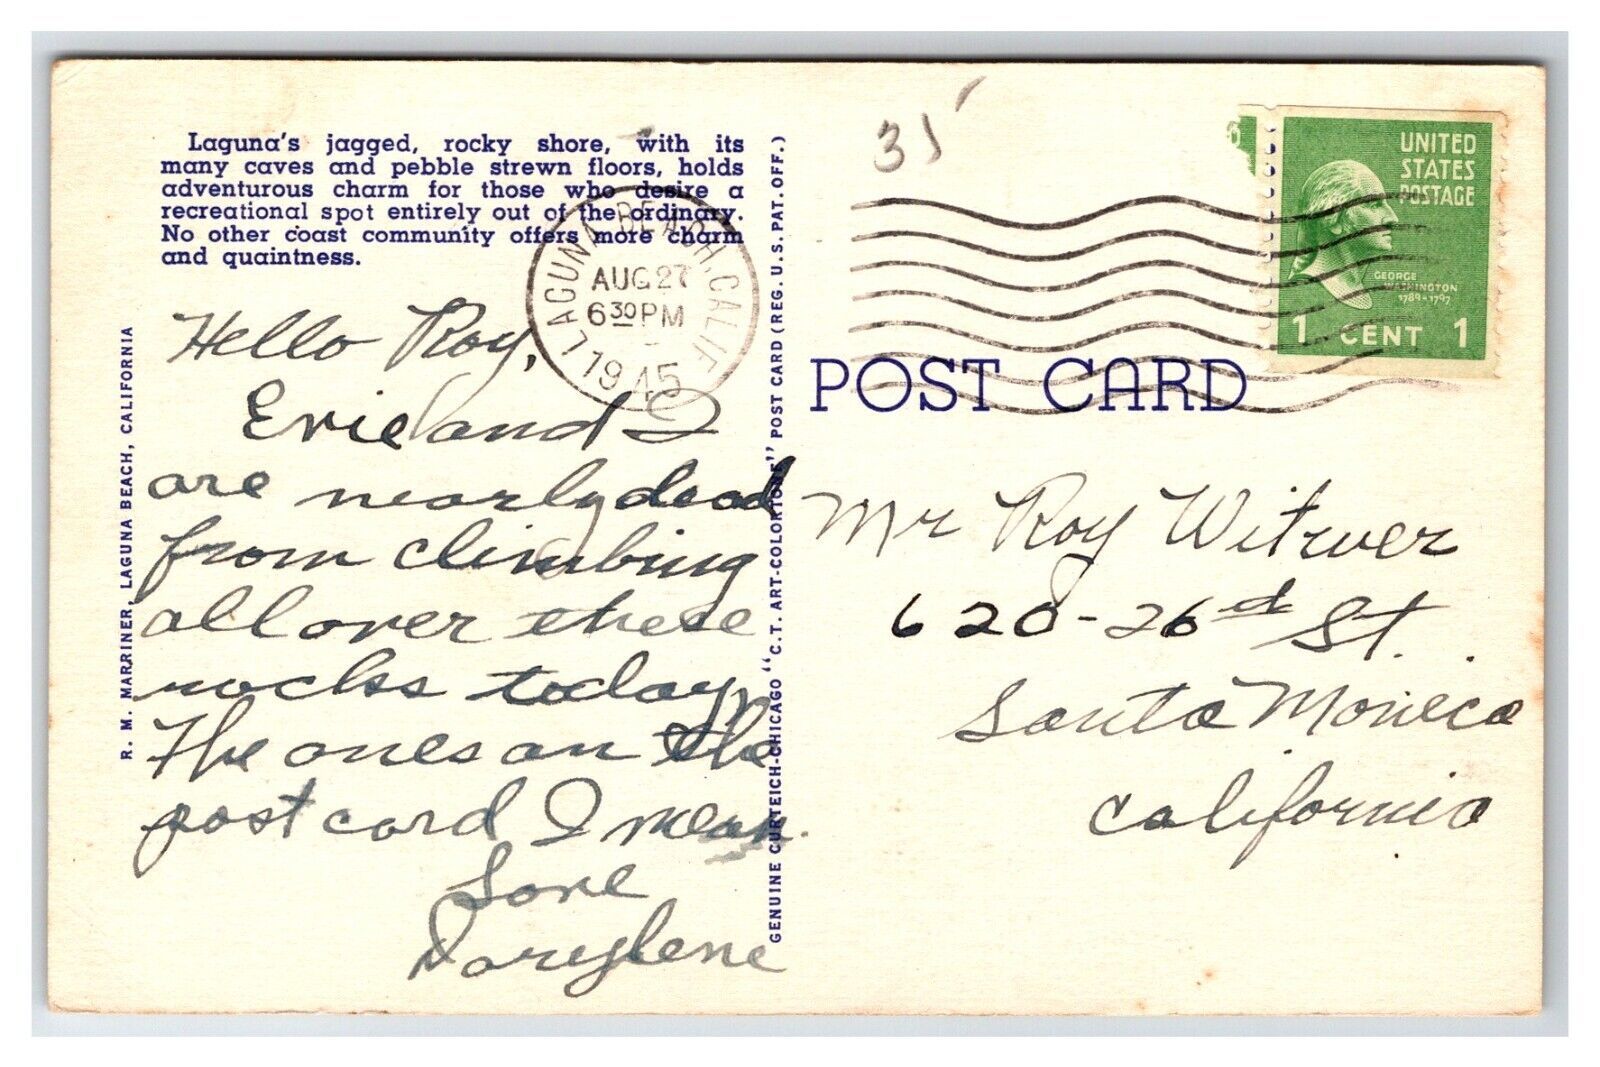 Laguna's jagged, rocky shore, with its
many caves and pebble strewn floors, holds
adventurous charm for those who desire a
recreational spot entirely out of the ordinary.
No other coast community offers more charm
and quaintness.
LAGUNA BEACH, CALIF.
AUG 27
6 30 PM
1945
Hello Roy,
Evie and I
are nearly dead
from climbing
all over these
rocks today,
The ones on the
post card I mean.
Love
Darylene
R. M. MARRINER, LAGUNA BEACH, CALIFORNIA
GENUINE CURTEICH-CHICAGO "C.T. ART-COLORTONE" POST CARD (REG. U.S. PAT. OFF.)
35
UNITED
STATES
POSTAGE
GEORGE
WASHINGTON
1789-1797
1 CENT 1
POST CARD
Mr Roy Witwer
620-26d St.
Santa Monica
California